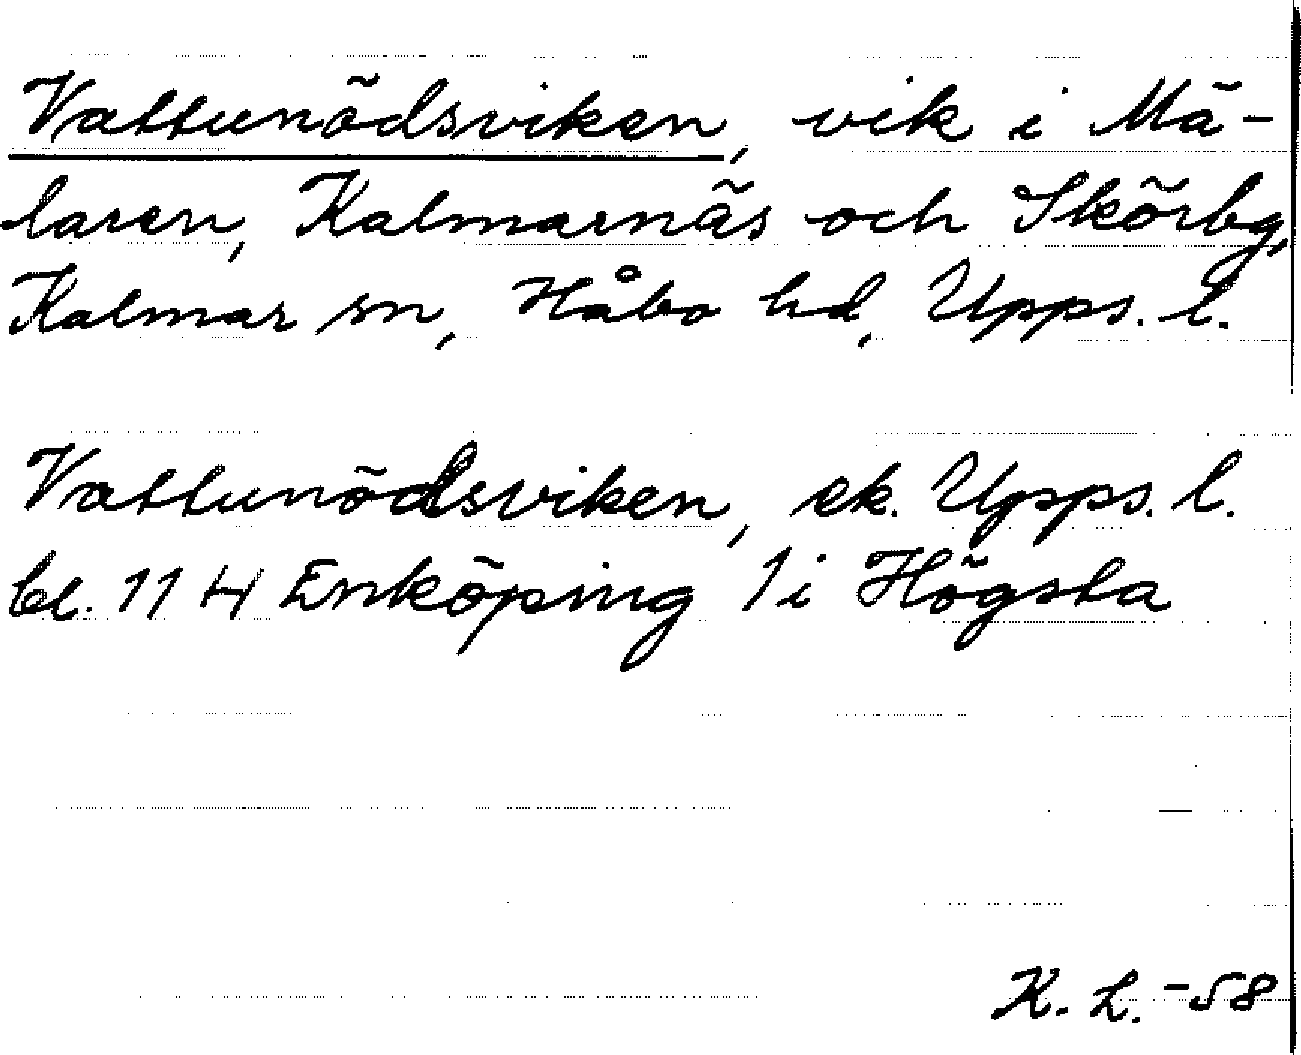 Vattunödsviken, vik i Mä-
laren, Kalmarnäs och Skörby,
Kalmar sn, Håbo hd, Upps. l.
Vattunödsviken, ek. Upps. l.
bl. 114 Enköping 1i Högsta
K. L. -58